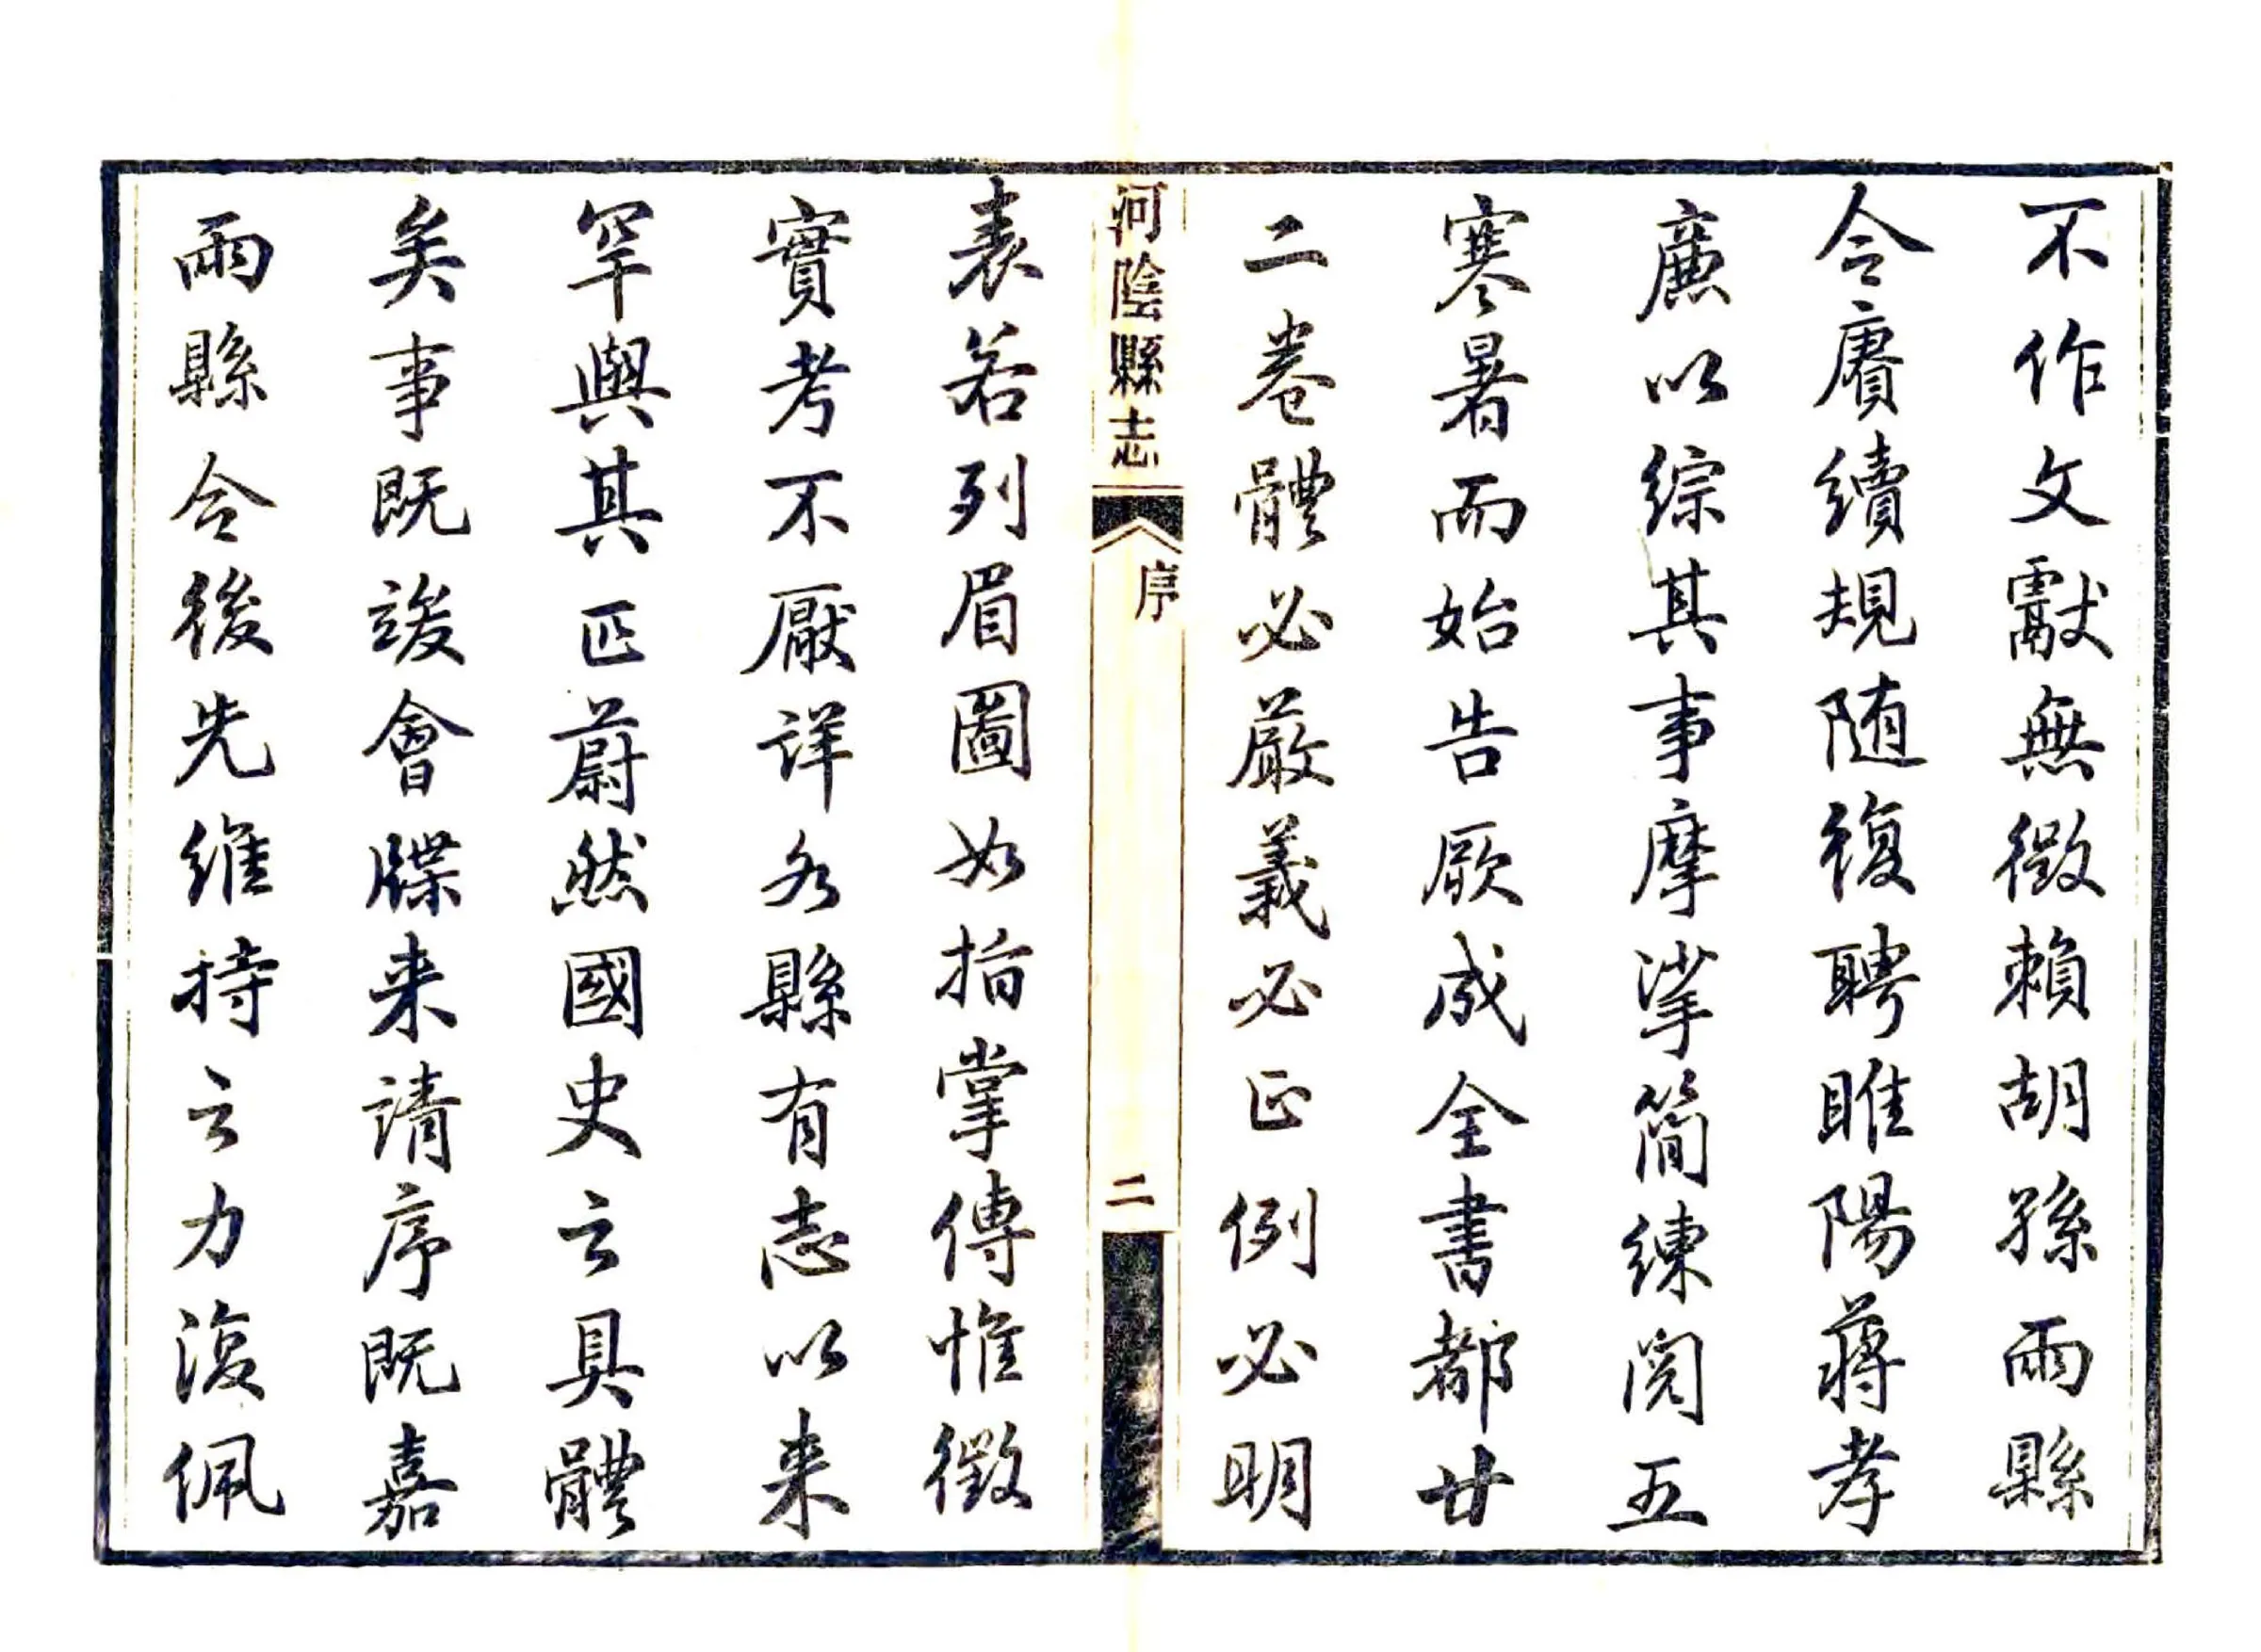 不作文獻無徵賴胡孫兩縣
令賡續規随復聘睢陽蔣孝
廉以綜其事摩挲簡練閱五
寒暑而始告厥成全書都廿
二卷體必嚴義必正例必明
河陰縣志
序
二
表若列眉圖如指掌傳惟徵
實考不厭详各縣有志以来
罕與其匹蔚然國史之具體
矣事既竣會牒来请序既嘉
兩縣令後先維持之力復佩